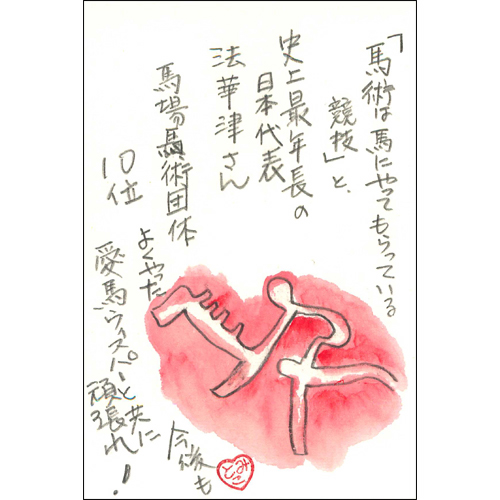 「馬術は馬にやってもらっている
競技」と、
史上最年長の
日本代表
法華津さん
馬場馬術団体
10位
よくやった
愛馬ウィスパーと
共に
頑張れ!
今後も